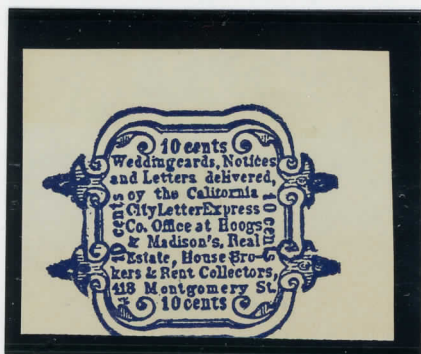 10 cents
Weddingcards, Notices
and Letters delivered,
by the California
City Letter Express
Co. Office at Hoogs
& Madison's, Real
Estate, House Bro-
kers & Rent Collectors,
418 Montgomery St.
10 cents
10 cents
10 cents